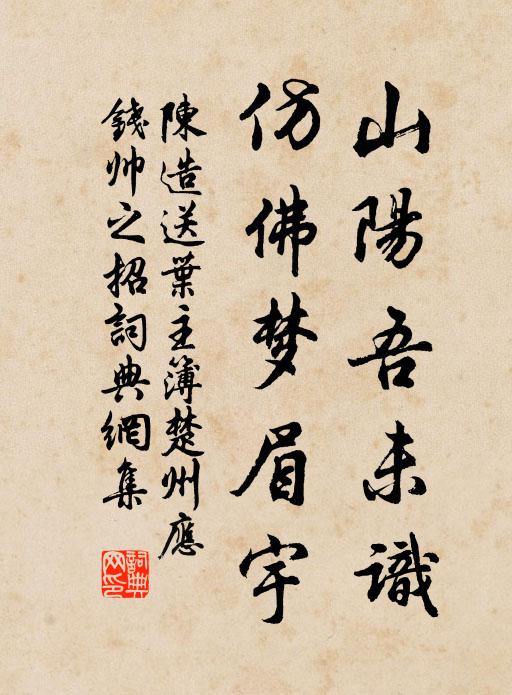 山陽吾未識
仿佛梦眉宇
陳造送葉主簿楚州應
錢帅之招詞典網集
詞典网印